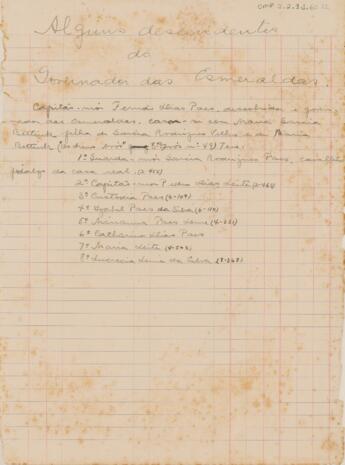 Alguns descendentes
do
Governador das Esmeraldas.
Capitão-mór Fernão Dias Paes, descobridor e gover-
nador das esmeraldas, casou-se com Maria Garcia
Bettink filha de Garcia Rodrigues Velho e de Maria
Bettink Teve:
1º Guarda-mór Garcia Rodrigues Paes, cavalleiro
fidalgo da casa real.
2º Capitão-mór Pedro Dias Leite
3º Custodia Paes
4º Izabel Paes da Silva
5º Marianna Paes Leme
6º Catharina Dias Paes
7º Maria Leite
8º Lucrecia Leme da Silva